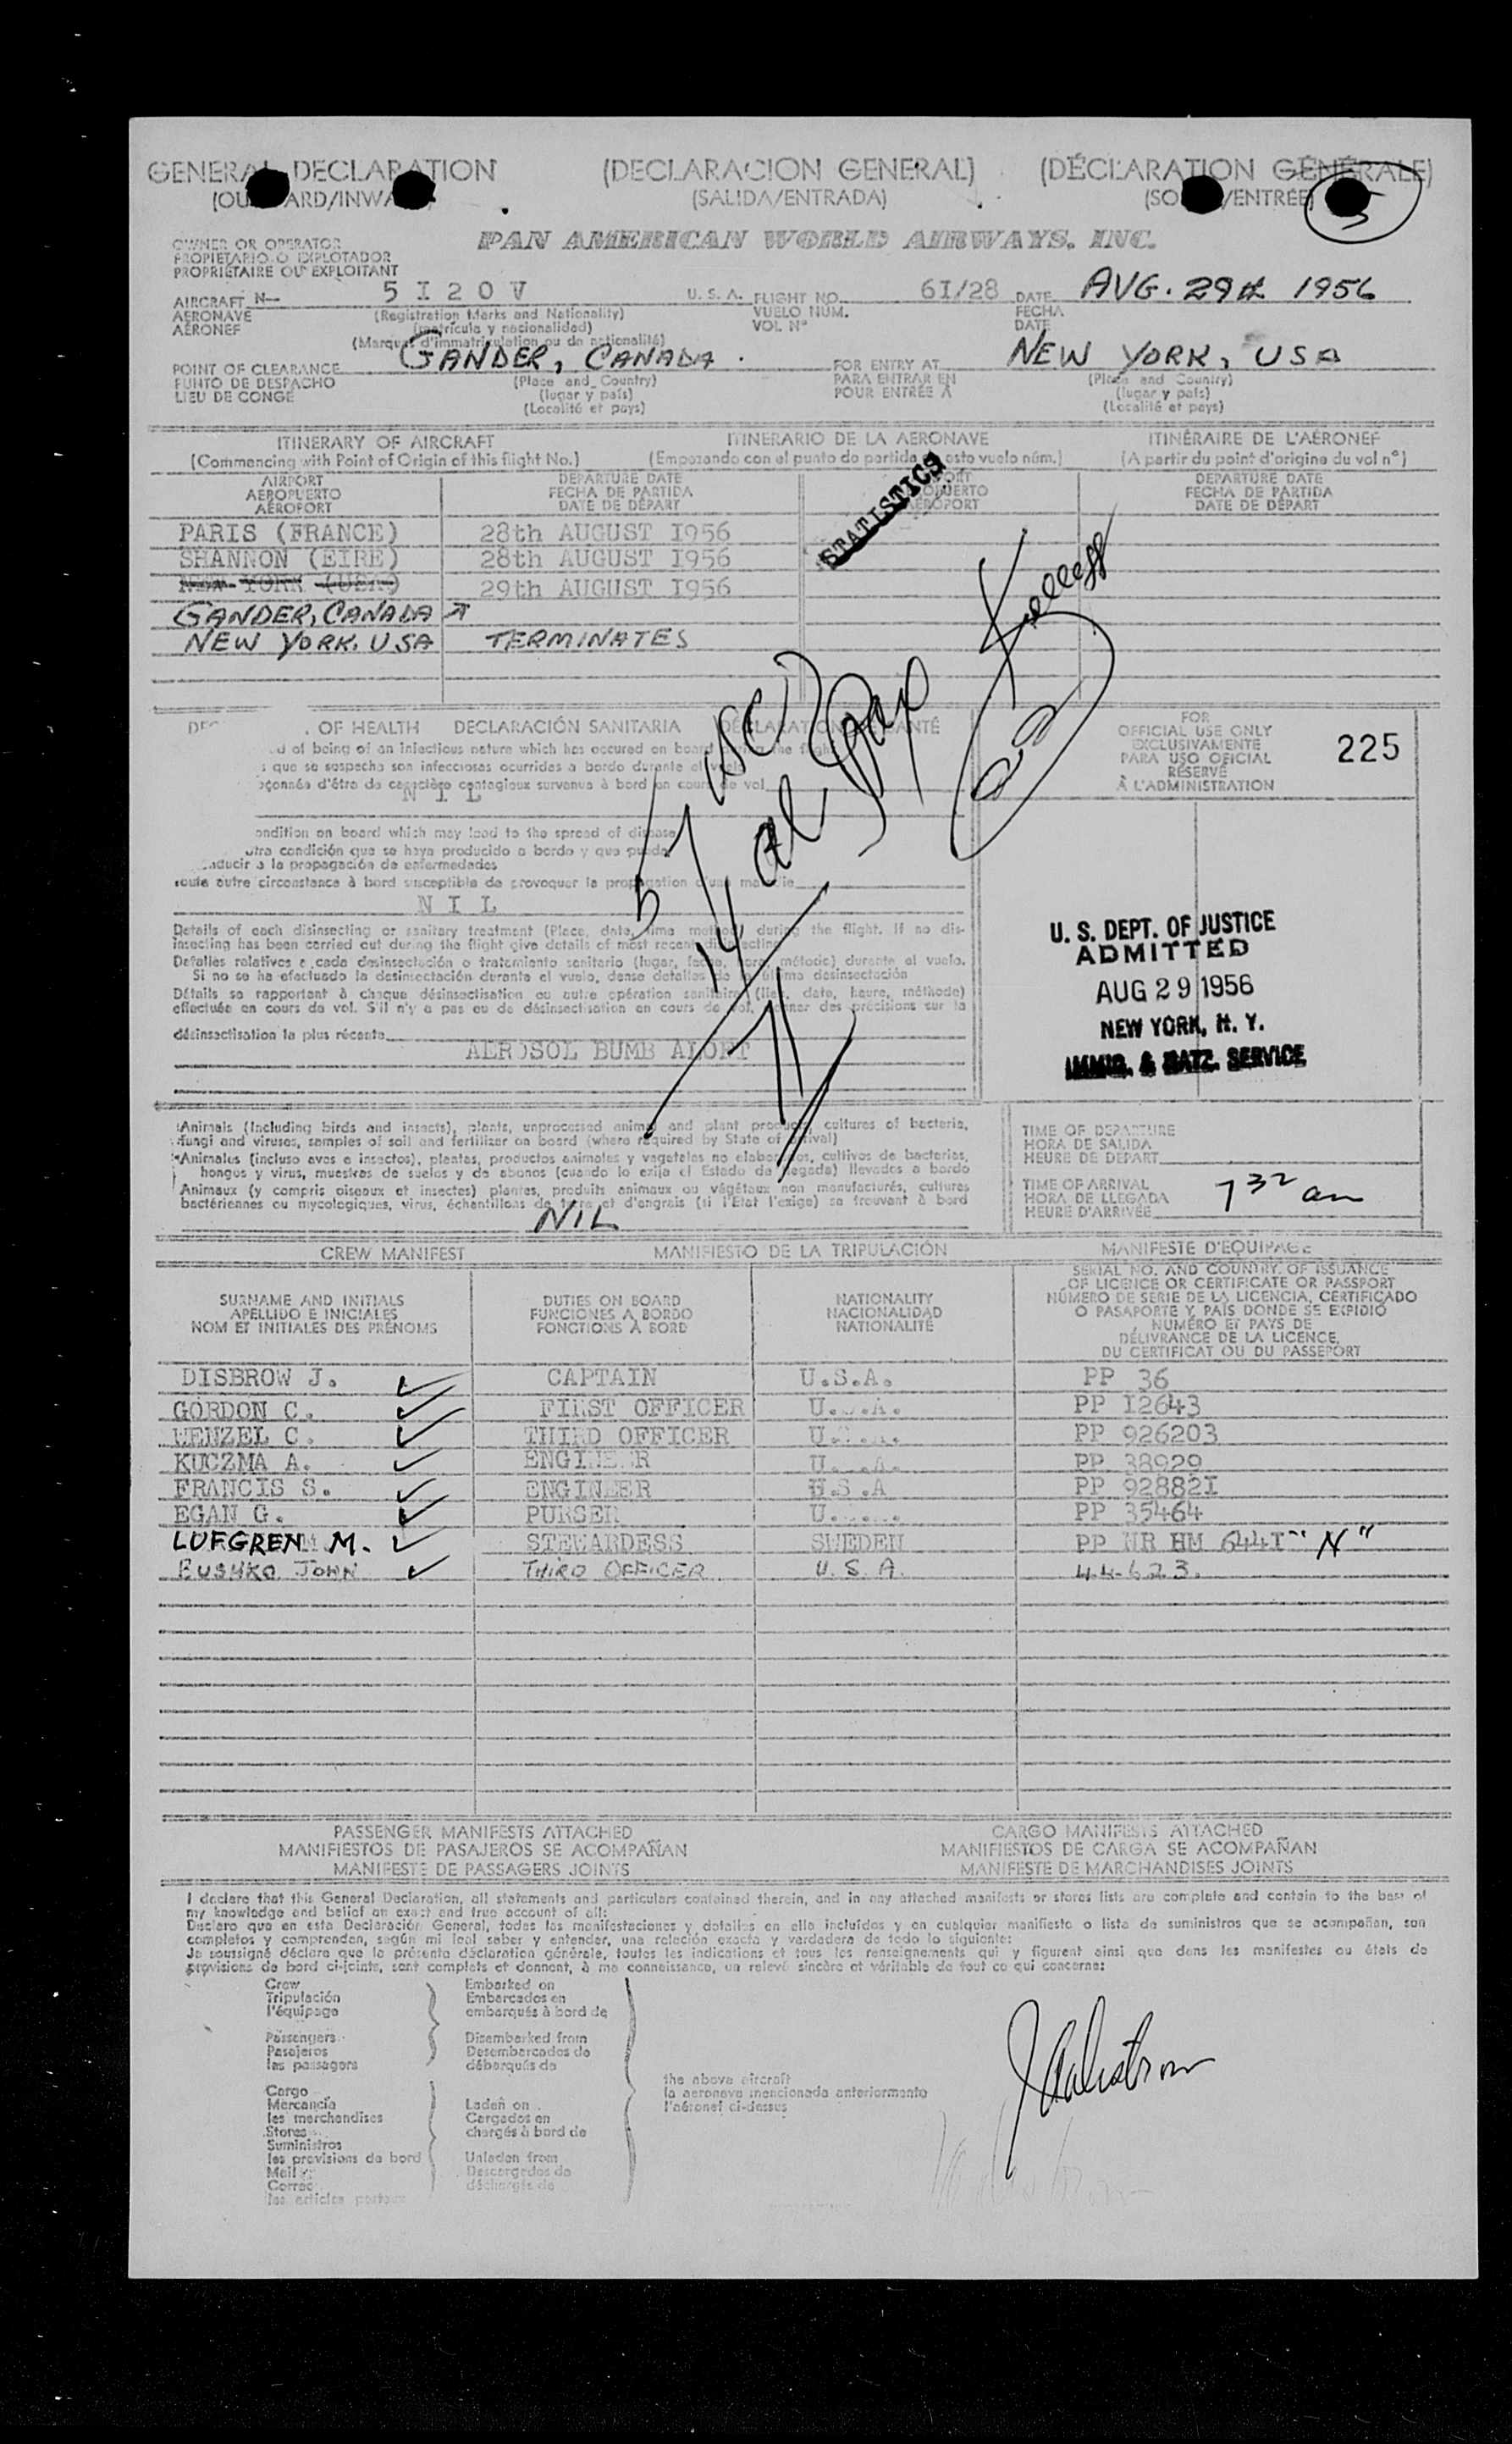 GENERAL DECLARATION (DECLARACION GENERAL) (DÉCLARATION GÉNÉRALE)
(SALIDA/ENTRADA)
5
OWNER OR OPERATOR
PROPIETARIO O EXPLOTADOR
PROPRIÉTAIRE OU EXPLOITANT
PAN AMERICAN WORLD AIRWAYS, INC.
AIRCRAFT N— 5 I 2 0 V U. S. A. FLIGHT NO. 6I/28 DATE AUG. 29th 1956
AÉRONAVE (Registration Marks and Nationality) VUELO NÚM. FECHA
AÉRONEF (matrícula y nacionalidad) VOL Nº DATE
(Marques d'immatriculation ou de nationalité)
POINT OF CLEARANCE GANDER, CANADA. FOR ENTRY AT NEW YORK, USA
PUNTO DE DESPACHO (Place and Country) PARA ENTRAR EN (Place and Country)
LIEU DE CONGÉ (lugar y país) POUR ENTRÉE À (lugar y país)
(Localité et pays) (Localité et pays)
ITINERARY OF AIRCRAFT ITINERARIO DE LA AERONAVE ITINÉRAIRE DE L'AÉRONEF
(Commencing with Point of Origin of this flight No.) (Empezando con el punto de partida esto vuelo núm.) (A partir du point d'origine du vol nº)
AIRPORT DEPARTURE DATE DEPARTURE DATE
AEROPUERTO FECHA DE PARTIDA FECHA DE PARTIDA
AÉROPORT DATE DE DÉPART AÉROPORT DATE DE DÉPART
STATISTICS
PARIS (FRANCE) 28th AUGUST I956
SHANNON (EIRE) 28th AUGUST I956
NEW YORK (USA) 29th AUGUST I956
GANDER, CANADA
NEW YORK, USA TERMINATES
OF HEALTH DECLARACIÓN SANITARIA
of being of an infectious nature which has occured on board during the flight
que se sospecha son infecciosas ocurridas a bordo durante el vuelo
d'être de caractère contagieux survenus à bord en cours de vol
N I L
condition on board which may lead to the spread of disease
otra condición que se haya producido a bordo y que pueda
conducir a la propagación de enfermedades
toute autre circonstance à bord susceptible de provoquer la propagation d'une maladie
N I L
Details of each disinsecting or sanitary treatment (Place, date, time method) during the flight. If no dis-
insecting has been carried out during the flight give details of most recent disinsecting
Detalles relativos a cada desinsectación o tratamiento sanitario (lugar, fecha, hora, método) durante el vuelo.
Si no se ha efectuado la desinsectación durante el vuelo, dense detalles de la última desinsectación
Détails se rapportant à chaque désinsectisation ou autre opération sanitaire (lieu, date, heure, méthode)
effectuée en cours de vol. S'il n'y a pas eu de désinsectisation en cours de vol, donner des précisions sur la
désinsectisation la plus récente
AEROSOL BUMB ALOFT
FOR
OFFICIAL USE ONLY
EXCLUSIVAMENTE
PARA USO OFICIAL
RÉSERVÉ
À L'ADMINISTRATION
225
U. S. DEPT. OF JUSTICE
ADMITTED
AUG 29 1956
NEW YORK, N. Y.
IMMIG. & NATZ. SERVICE
Animals (Including birds and insects), plants, unprocessed animal and plant products, cultures of bacteria,
fungi and viruses, samples of soil and fertilizer on board (where required by State of arrival)
Animales (incluso aves e insectos), plantas, productos animales y vegetales no elaborados, cultivos de bacterias,
hongos y virus, muestras de suelos y de abonos (cuando lo exija el Estado de llegada) llevados a bordo
Animaux (y compris oiseaux et insectes) plantes, produits animaux ou végétaux non manufacturés, cultures
bactériennes ou mycologiques, virus, échantillons de terre et d'engrais (si l'Etat l'exige) se trouvant à bord
NIL
TIME OF DEPARTURE
HORA DE SALIDA
HEURE DE DÉPART
TIME OF ARRIVAL
HORA DE LLEGADA
HEURE D'ARRIVÉE
7 32 am
CREW MANIFEST MANIFIESTO DE LA TRIPULACIÓN MANIFESTE D'ÉQUIPAGE
SURNAME AND INITIALS
APELLIDO E INICIALES
NOM ET INITIALES DES PRÉNOMS
DUTIES ON BOARD
FUNCIONES A BORDO
FONCTIONS À BORD
NATIONALITY
NACIONALIDAD
NATIONALITÉ
SERIAL NO. AND COUNTRY OF ISSUANCE
OF LICENCE OR CERTIFICATE OR PASSPORT
NÚMERO DE SERIE DE LA LICENCIA, CERTIFICADO
O PASAPORTE Y PAÍS DONDE SE EXPIDIÓ
NUMÉRO ET PAYS DE
DÉLIVRANCE DE LA LICENCE,
DU CERTIFICAT OU DU PASSEPORT
DISBROW J. CAPTAIN U.S.A. PP 36
GORDON C. FIRST OFFICER U.S.A. PP I2643
WENZEL C. THIRD OFFICER U.S.A. PP 926203
KUCZMA A. ENGINEER U.S.A. PP 38929
FRANCIS S. ENGINEER U.S.A PP 92882I
EGAN G. PURSER U.S.A. PP 35464
LOFGREN M. STEWARDESS SWEDEN PP NR HM 644I "N"
BUSHKO JOHN THIRD OFFICER U. S. A. 44-623.
PASSENGER MANIFESTS ATTACHED CARGO MANIFESTS ATTACHED
MANIFIESTOS DE PASAJEROS SE ACOMPAÑAN MANIFIESTOS DE CARGA SE ACOMPAÑAN
MANIFESTE DE PASSAGERS JOINTS MANIFESTE DE MARCHANDISES JOINTS
I declare that this General Declaration, all statements and particulars contained therein, and in any attached manifests or stores lists are complete and contain to the best of
my knowledge and belief an exact and true account of all:
Declaro que en esta Declaración General, todas las manifestaciones y detalles en ella incluidos y en cualquier manifiesto o lista de suministros que se acompañan, son
completos y comprenden, según mi leal saber y entender, una relación exacta y verdadera de todo lo siguiente:
Je soussigné déclare que la présente déclaration générale, toutes les indications et tous les renseignements qui y figurent ainsi que dans les manifestes ou états de
provisions de bord ci-joints, sont complets et donnent, à ma connaissance, un relevé sincère et véritable de tout ce qui concerne:
Crew Embarked on
Tripulación Embarcados en
l'équipage embarqués à bord de
Passengers Disembarked from
Pasajeros Desembarcados de
les passagers débarqués de
the above aircraft
la aeronave mencionada anteriormente
l'aéronef ci-dessus
Cargo
Mercancía Laden on
les merchandises Cargados en
Stores chargés à bord de
Suministros
les provisions de bord Unladen from
Mail Descargados de
Correo déchargés de
les articles postaux